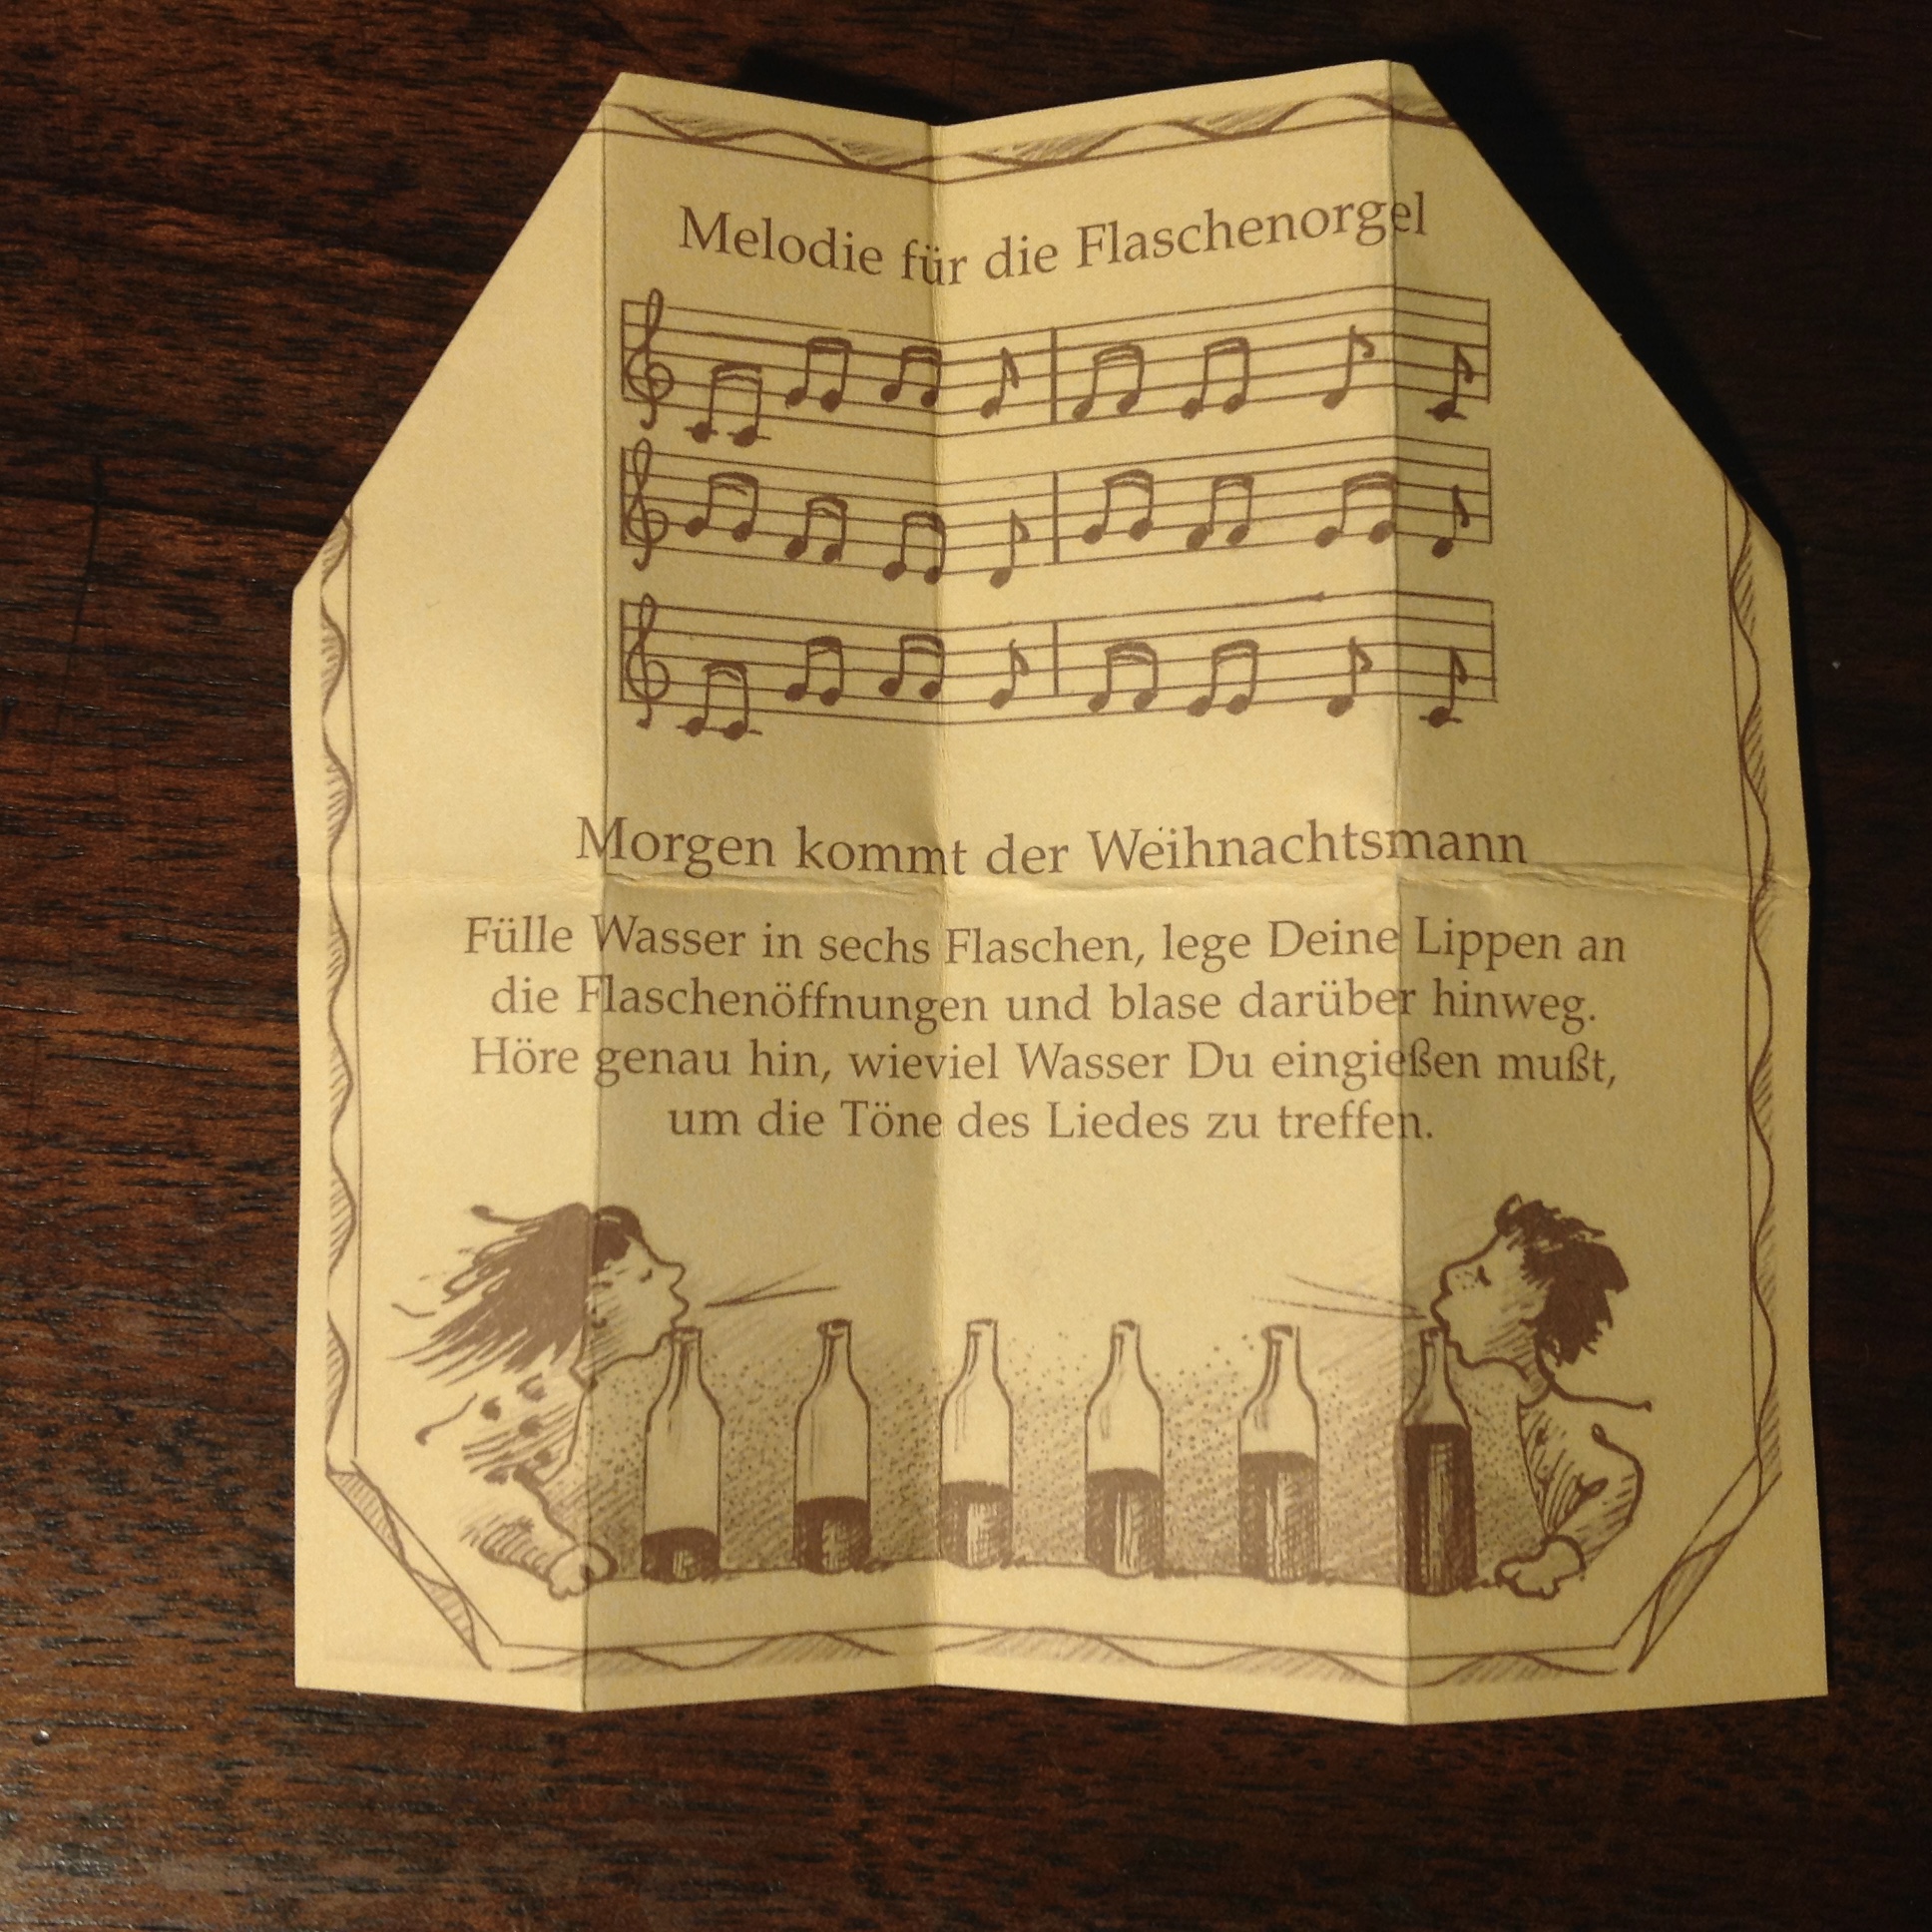 Melodie für die Flaschenorgel
Morgen kommt der Weihnachtsmann
Fülle Wasser in sechs Flaschen, lege Deine Lippen an
die Flaschenöffnungen und blase darüber hinweg.
Höre genau hin, wieviel Wasser Du eingießen mußt,
um die Töne des Liedes zu treffen.